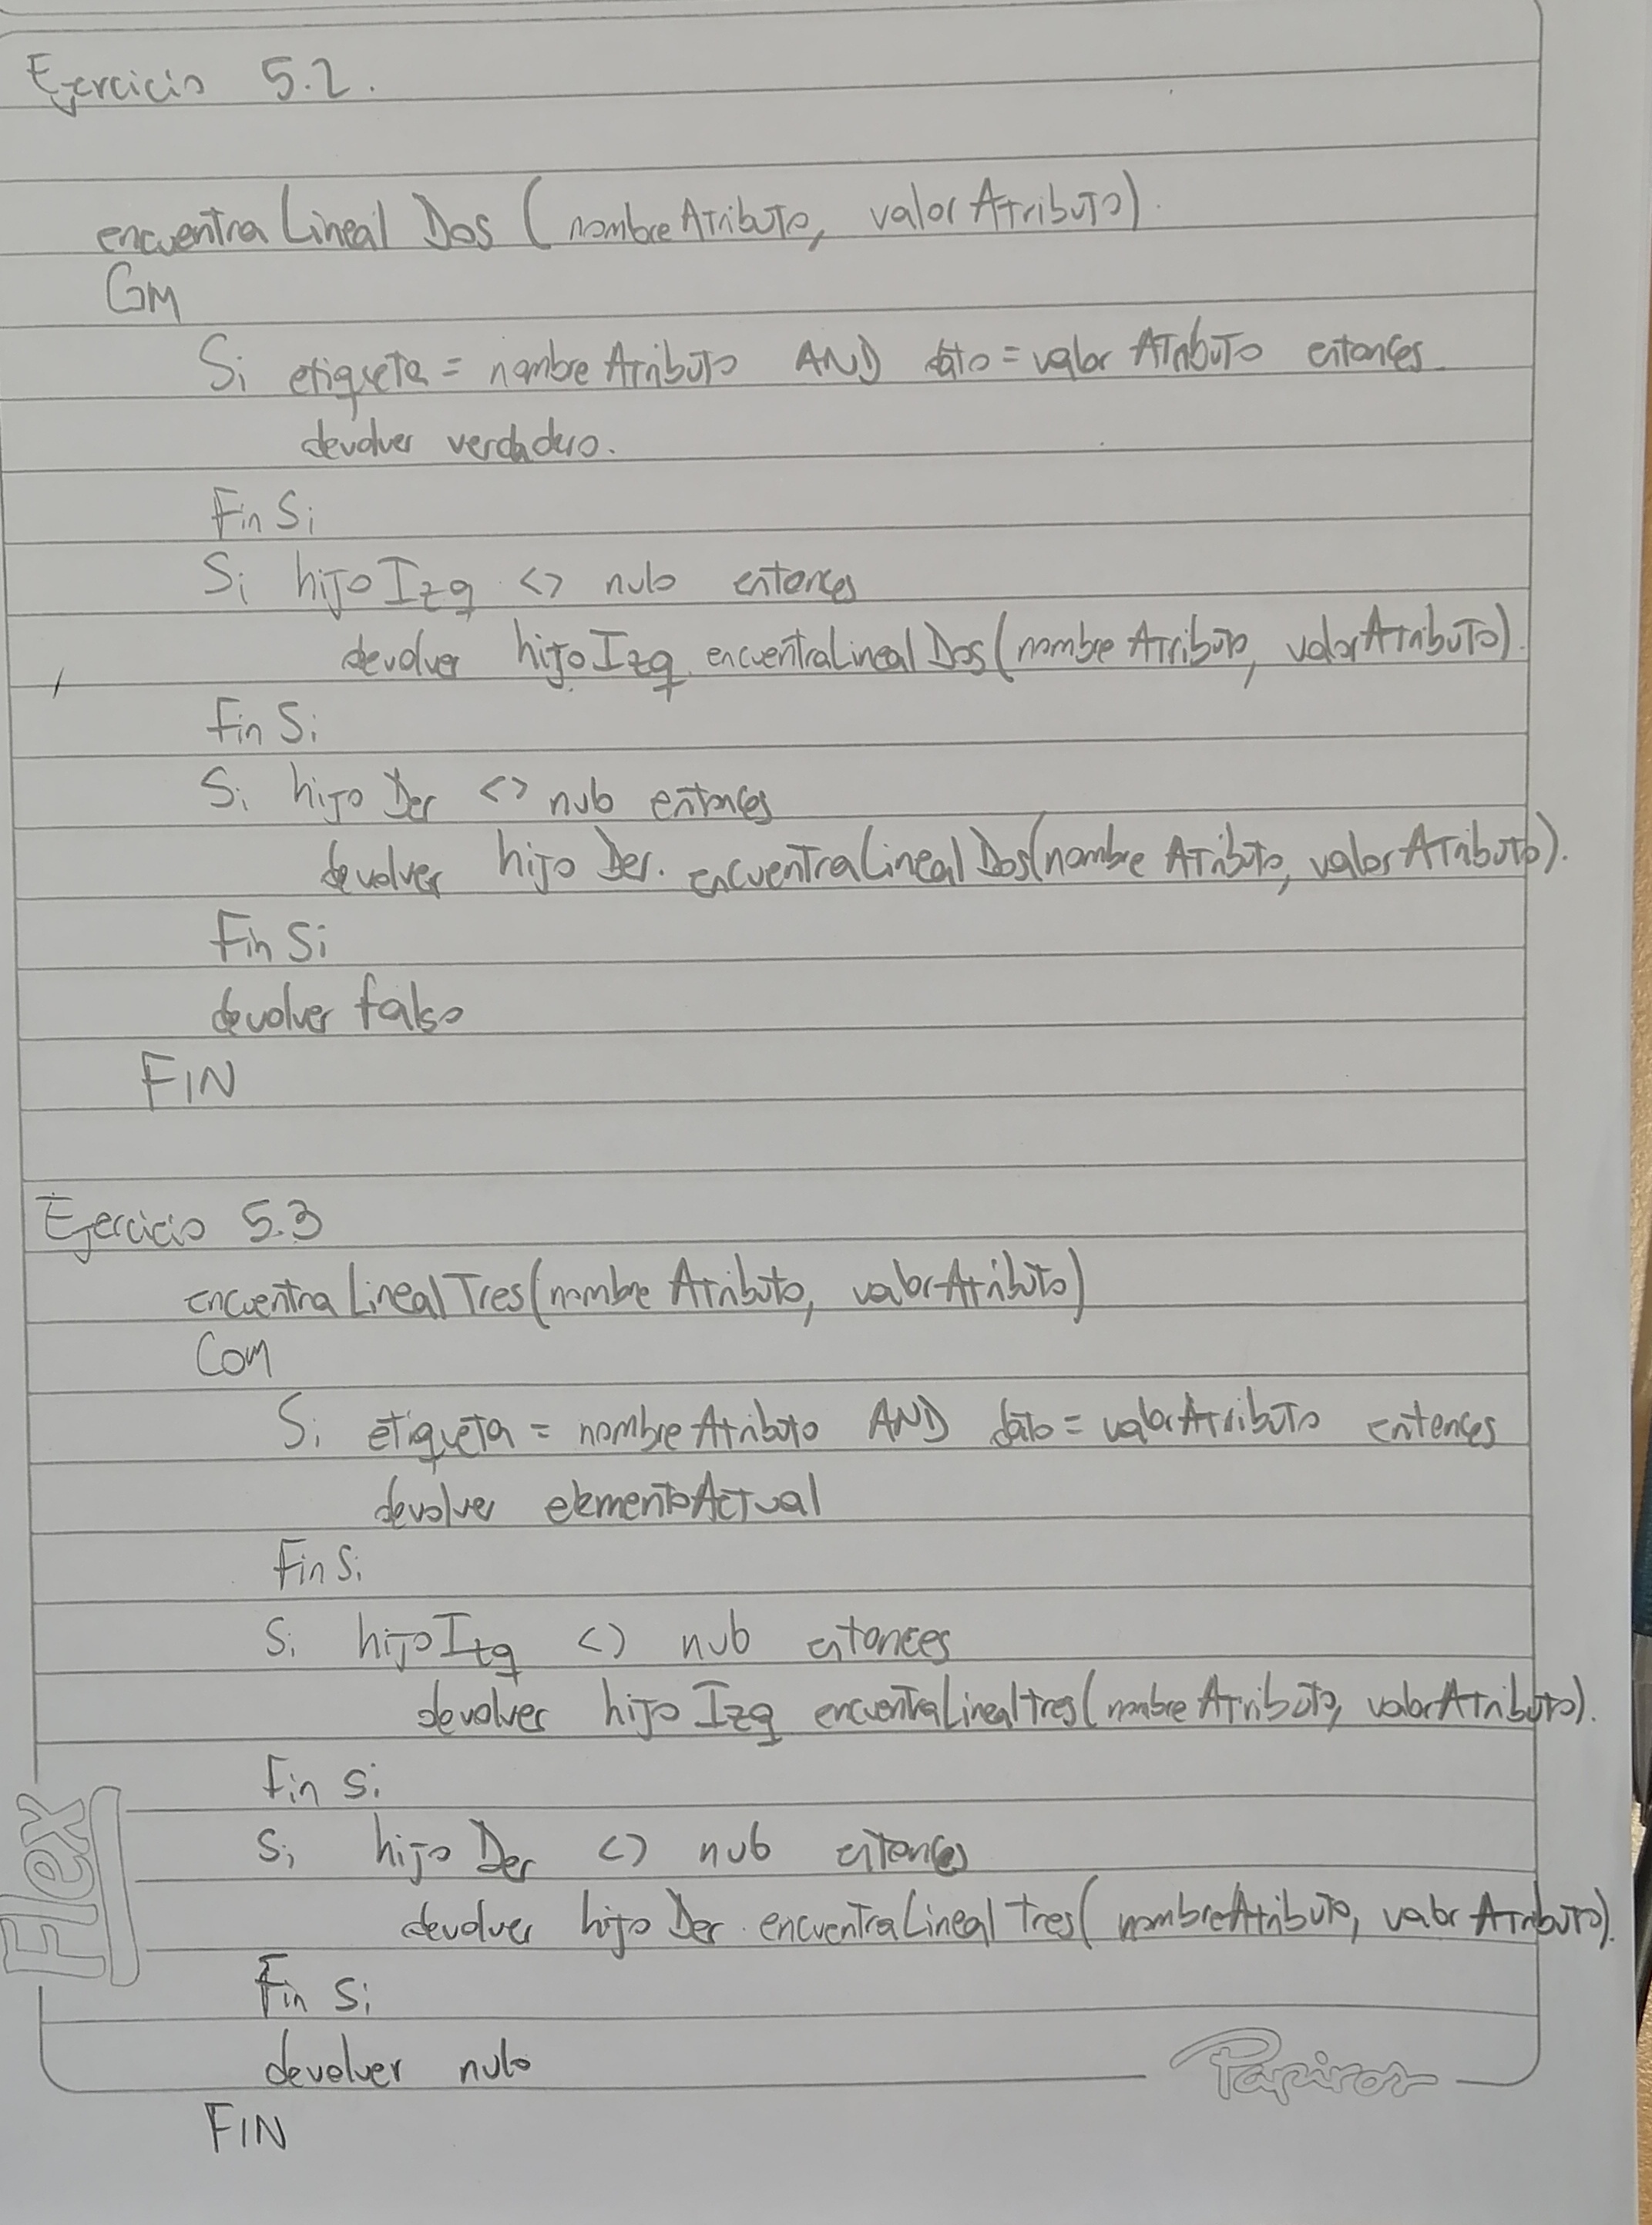 Ejercicio 5.2.
encuentraLinealDos (nombreAtributo, valorAtributo).
Com
Si etiqueta = nombreAtributo AND dato = valorAtributo entonces
devolver verdadero.
Fin Si
Si hijoIzq <> nulo entonces
devolver hijoIzq.encuentraLinealDos(nombreAtributo, valorAtributo).
Fin Si
Si hijoDer <> nulo entonces
devolver hijoDer.encuentraLinealDos(nombreAtributo, valorAtributo).
Fin Si
devolver falso
FIN
Ejercicio 5.3
encuentraLinealTres(nombreAtributo, valorAtributo)
Com
Si etiqueta = nombreAtributo AND dato = valorAtributo entonces
devolver elementoActual
Fin Si
Si hijoIzq <> nulo entonces
devolver hijoIzq encuentraLinealtres(nombreAtributo, valorAtributo).
Fin si
Si hijoDer <> nulo entonces
devolver hijoDer.encuentraLinealtres(nombreAtributo, valorAtributo).
Fin si
devolver nulo
FIN
Flex
Papiros